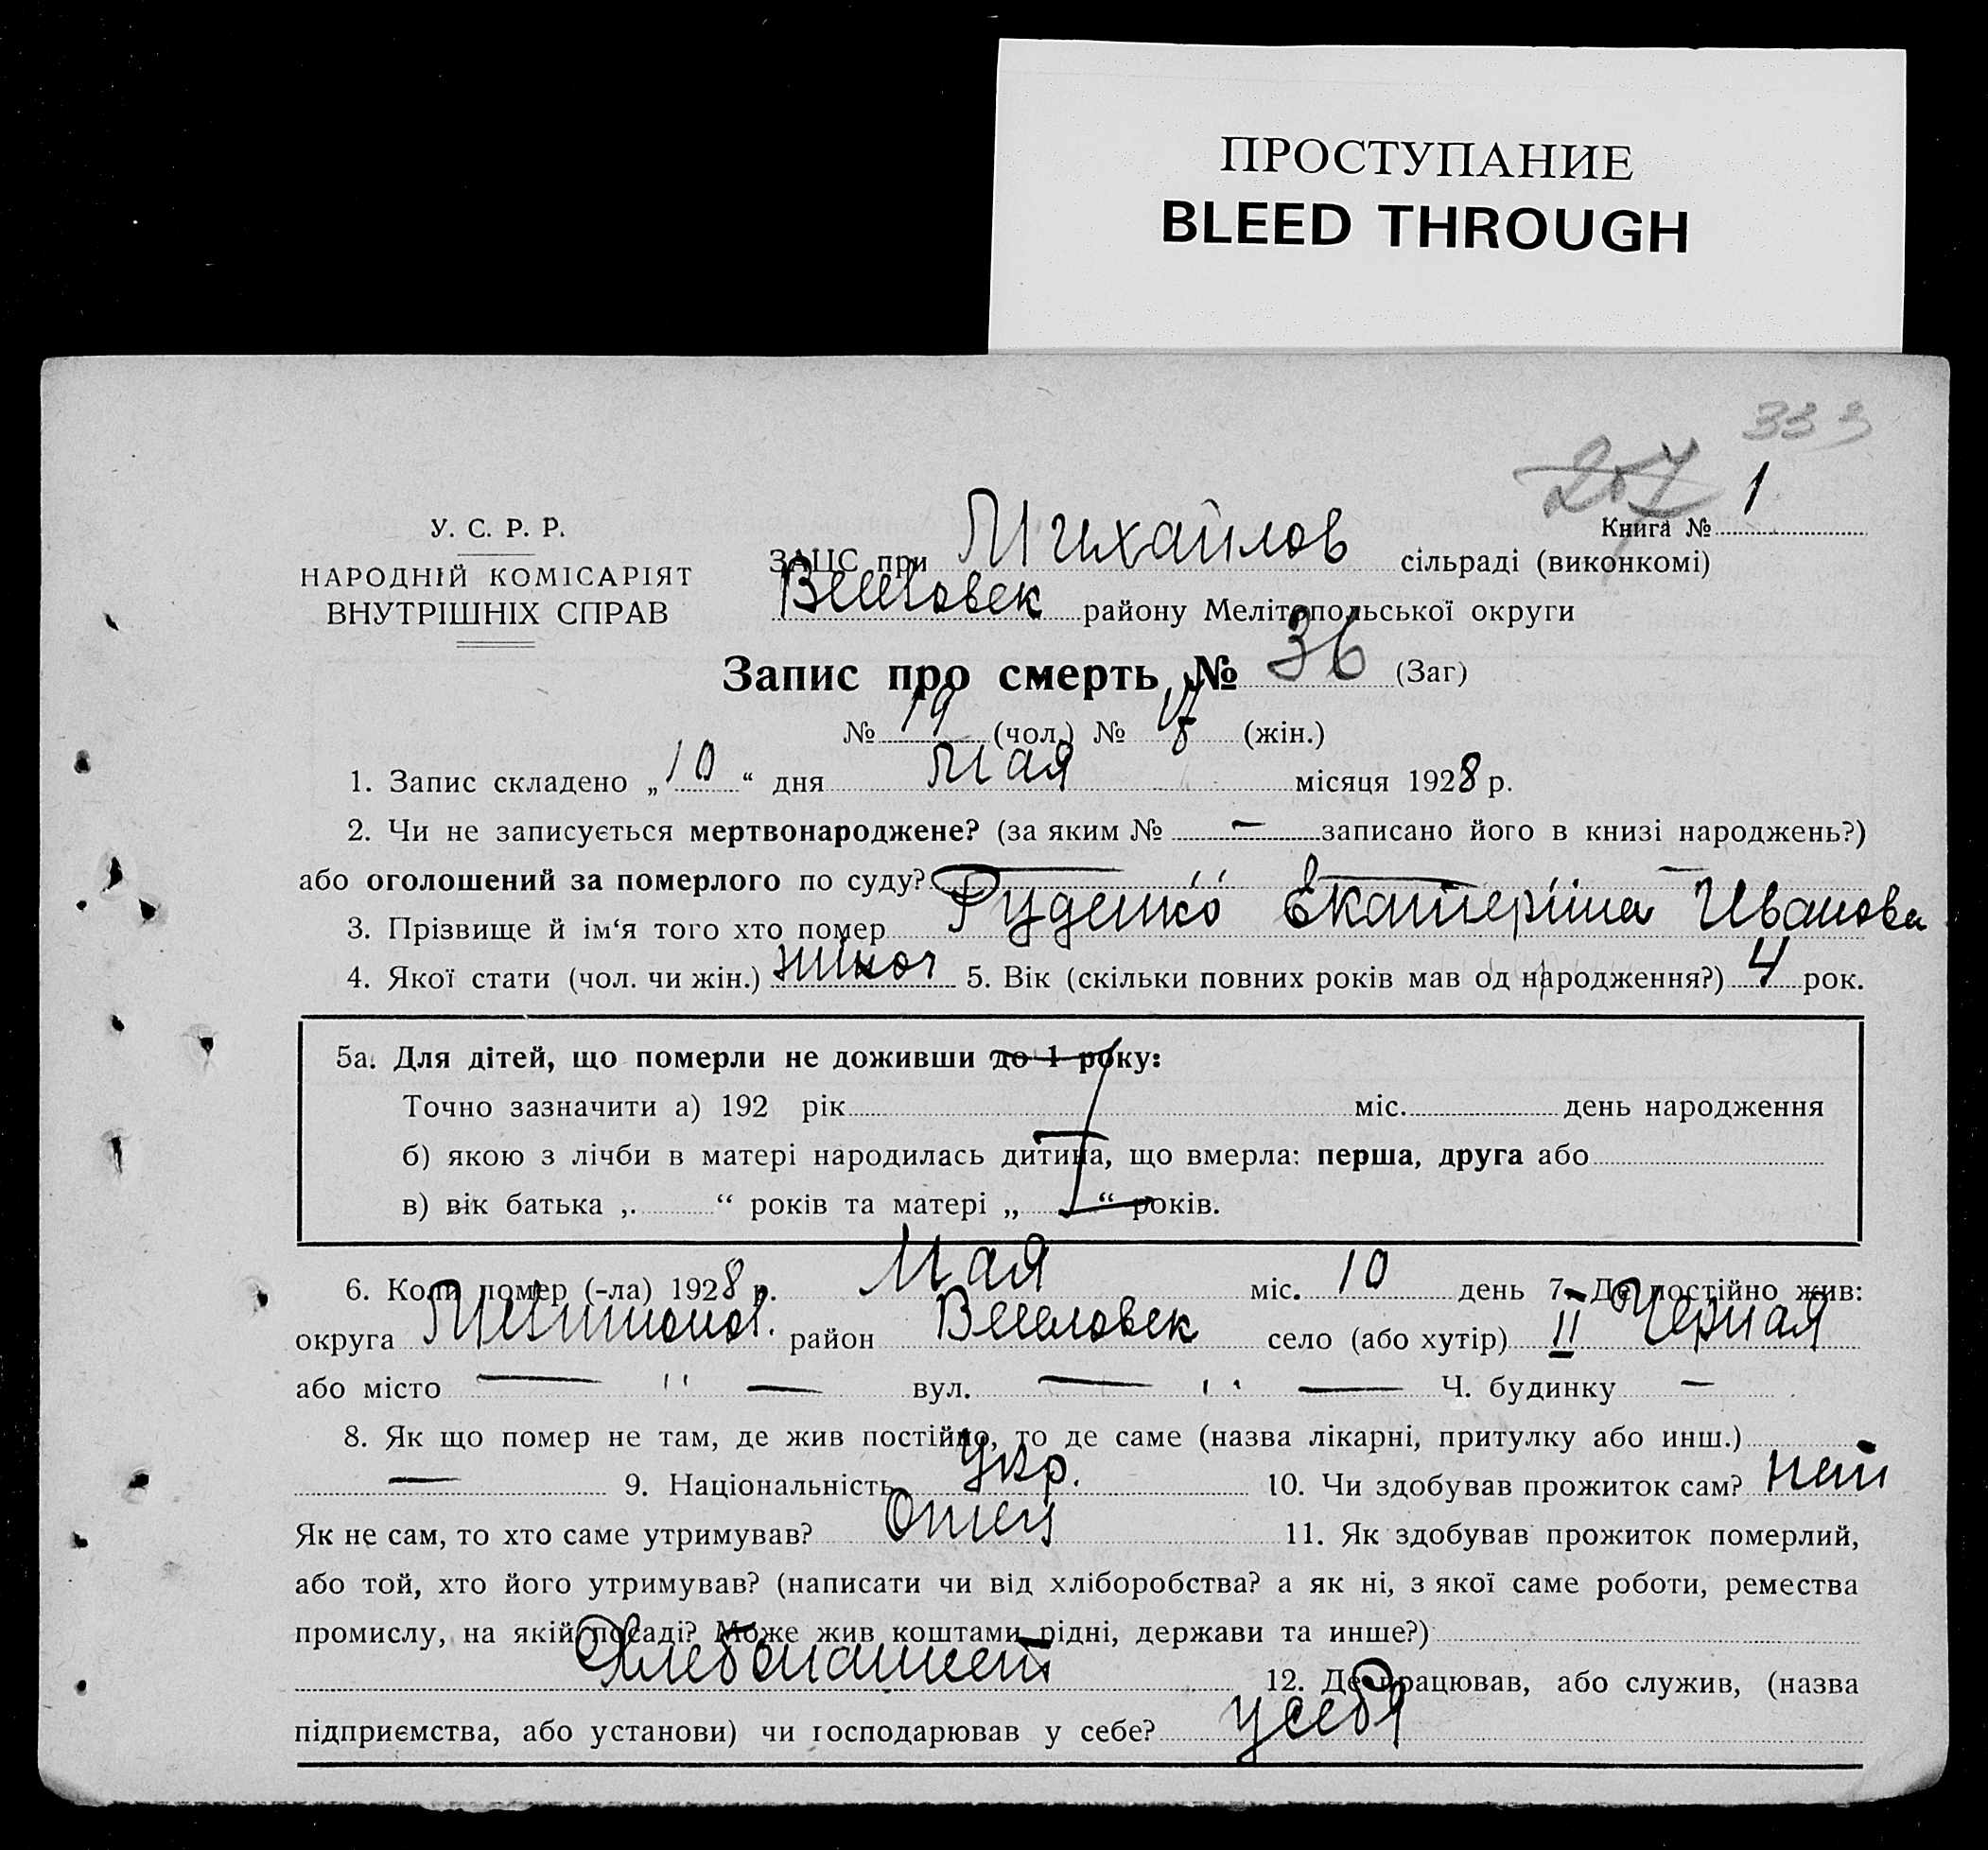 ПРОСТУПАНИЕ
BLEED THROUGH
333
257
Книга № 1
У. С. Р. Р.
НАРОДНІЙ КОМІСАРІЯТ
ВНУТРІШНІХ СПРАВ
ЗАЦС при Михайлов сільраді (виконкомі)
Веселовск району Мелітопольської округи
Запис про смерть № 36 (Заг)
№ 19 (чол.) № 17 (жін.)
1. Запис складено „ 10 “ дня Мая місяця 1928 р.
2. Чи не записується мертвонароджене? (за яким № — записано його в книзі народжень?)
або оголошений за померлого по суду?
3. Прізвище й ім‘я того хто помер Руденко Екатерина Иванова
4. Якої стати (чол. чи жін.) жиноч 5. Вік (скільки повних років мав од народження?) 4 рок.
5а. Для дітей, що померли не доживши до 1 року:
Точно зазначити а) 192 рік міс. день народження
б) якою з лічби в матері народилась дитина, що вмерла: перша, друга або
в) вік батька „ “ років та матері „ “ років.
6. Коли помер (-ла) 1928 р. Мая міс. 10 день 7. Де постійно жив:
округа Мелитопол. район Веселовск село (або хутір) II Черная
або місто — " — вул. — " — Ч. будинку —
8. Як що помер не там, де жив постійно, то де саме (назва лікарні, притулку або инш.)
— 9. Національність Укр. 10. Чи здобував прожиток сам? Нет
Як не сам, то хто саме утримував? Отец 11. Як здобував прожиток померлий,
або той, хто його утримував? (написати чи від хліборобства? а як ні, з якої саме роботи, ремества
промислу, на якій посаді? Може жив коштами рідні, держави та инше?)
Хлебопашест 12. Де працював, або служив, (назва
підприємства, або установи) чи господарював у себе? у себя